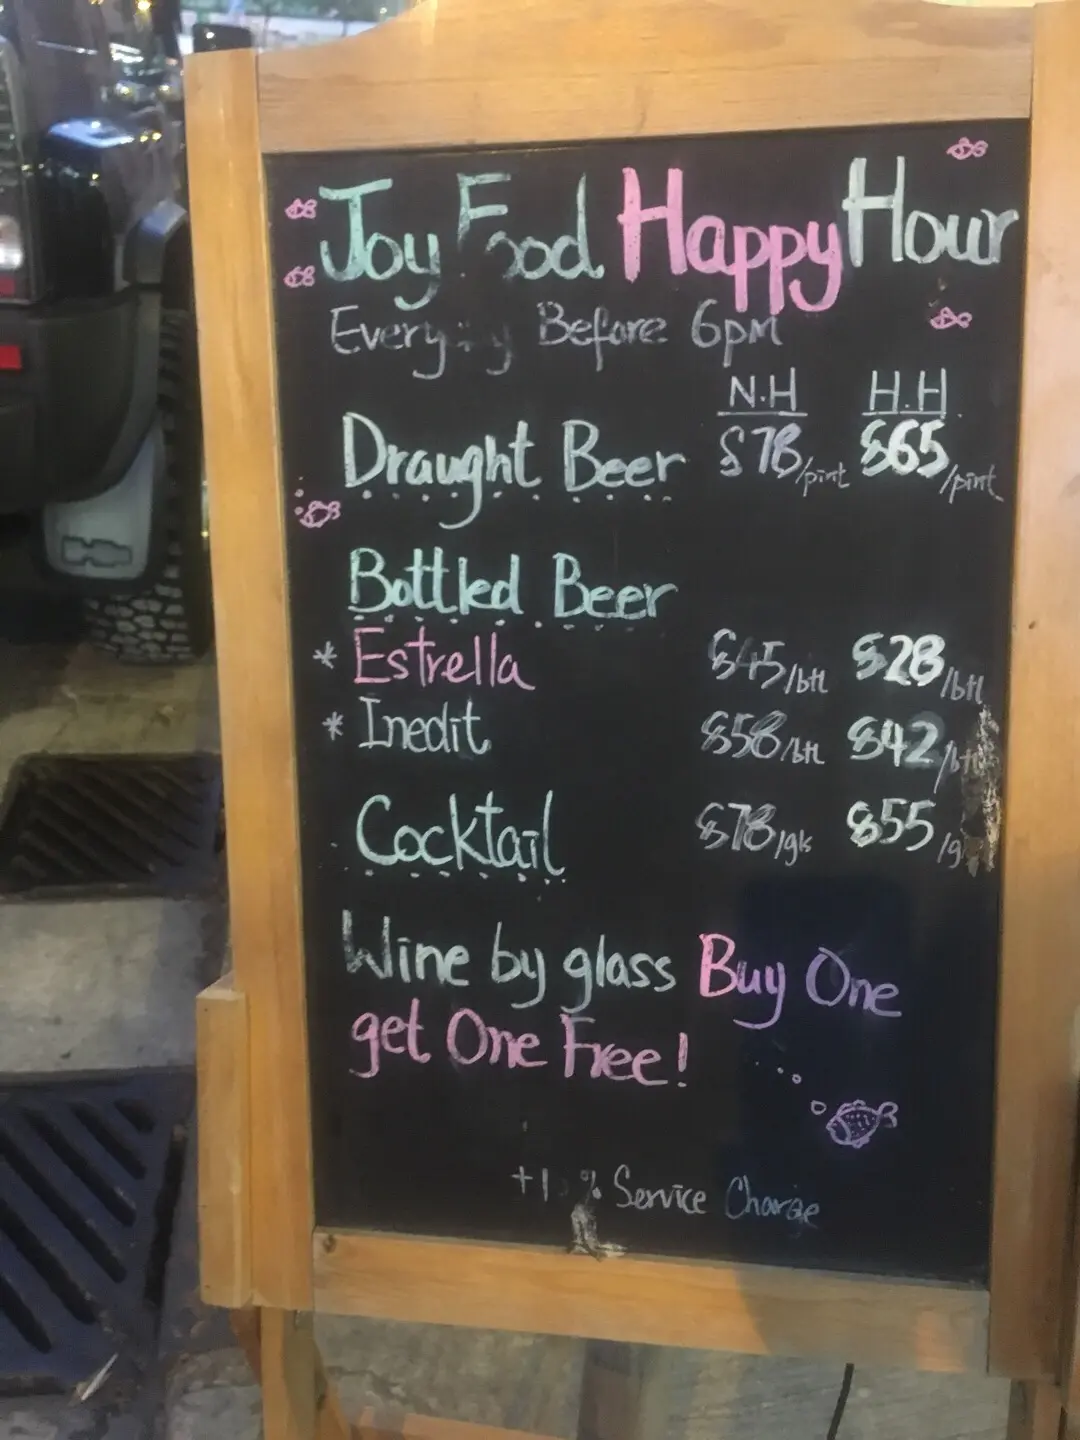 Joy Food Happy Hour
Before 6pm
N.H H.H
Draught Beer $78/pint $65/pint
Bottled Beer
* Estrella $45/btl $28/btl
* Inedit $58/btl $42/btl
Cocktail $78/gls $55
Wine by glass Buy One
get One Free!
Service Charge